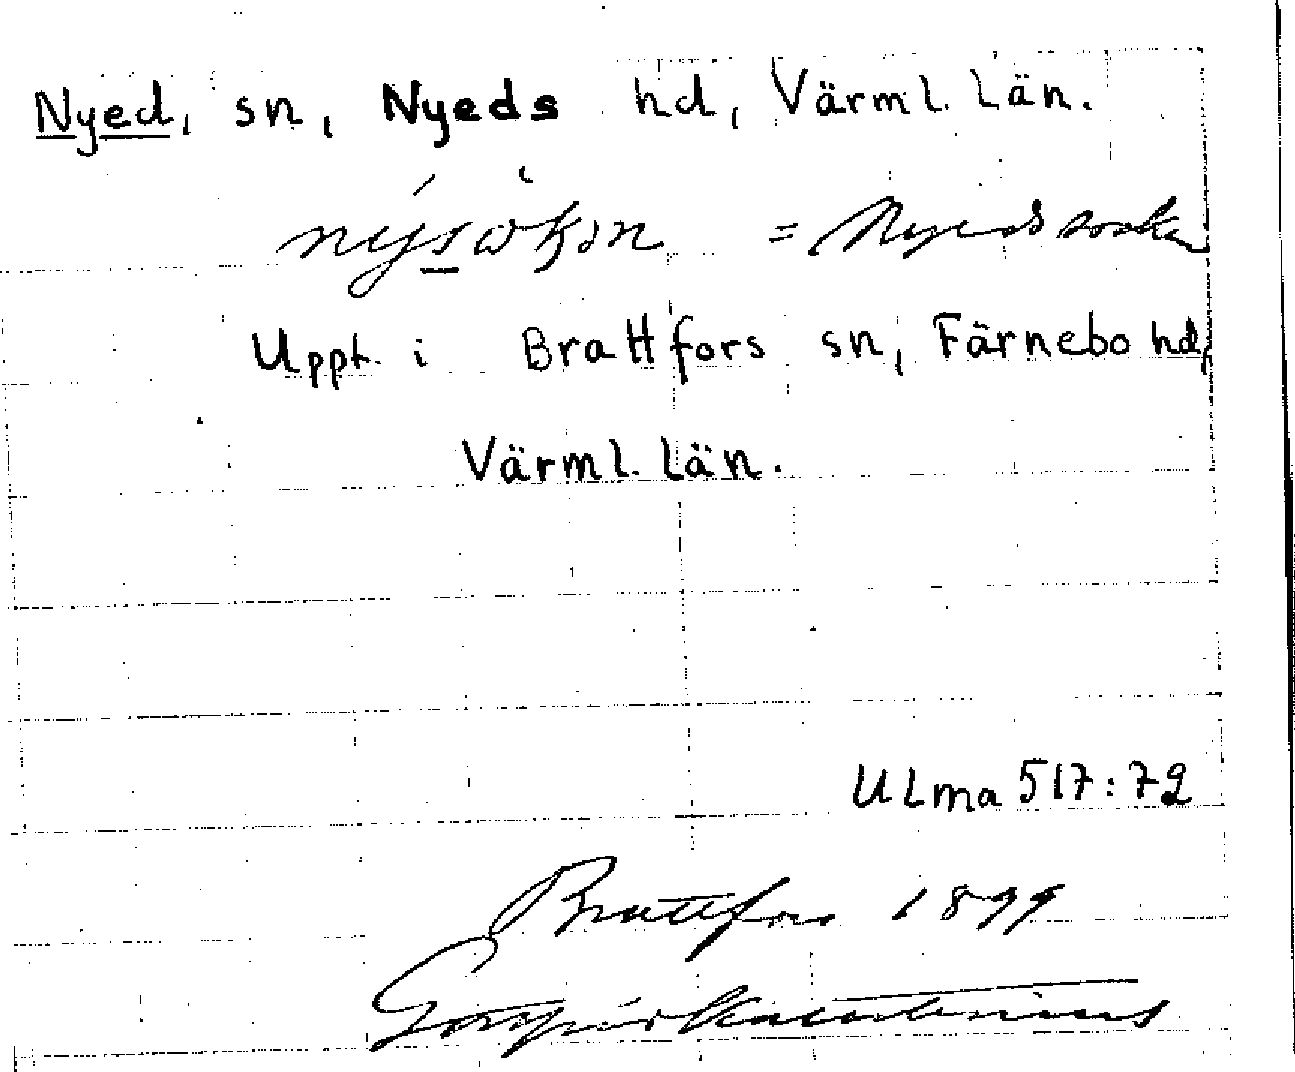 Nyed, sn, Nyeds hd, Värml. län.
= Nyeds socken
Uppt. i Brattfors sn, Färnebo hd,
Värml. län.
ULma 517:72
Brattfors 1899